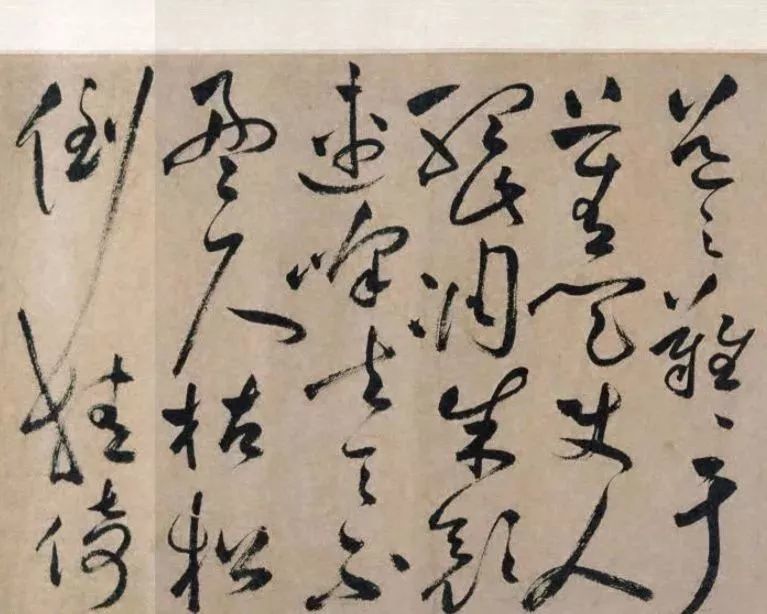 道之難〻于
上青天使人
聽此凋朱顏
連峰去天不
盈尺枯松
倒挂倚